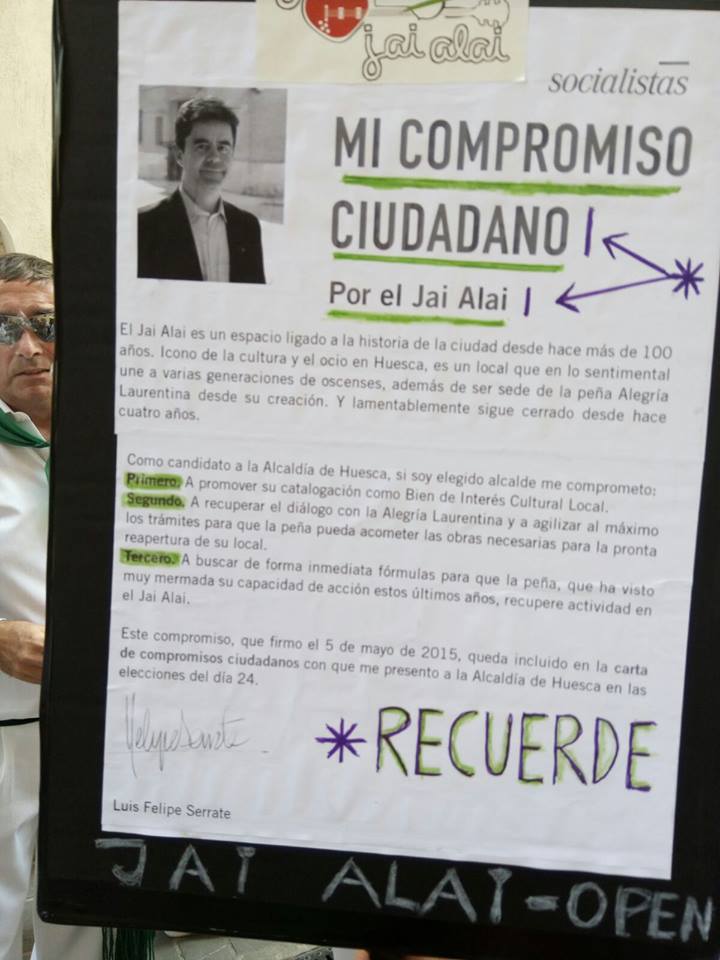 jai alai
socialistas
MI COMPROMISO
CIUDADANO
Por el Jai Alai
El Jai Alai es un espacio ligado a la historia de la ciudad desde hace más de 100
años. Icono de la cultura y el ocio en Huesca, es un local que en lo sentimental
une a varias generaciones de oscenses, además de ser sede de la peña Alegría
Laurentina desde su creación. Y lamentablemente sigue cerrado desde hace
cuatro años.
Como candidato a la Alcaldía de Huesca, si soy elegido alcalde me comprometo:
Primero. A promover su catalogación como Bien de Interés Cultural Local.
Segundo. A recuperar el diálogo con la Alegría Laurentina y a agilizar al máximo
los trámites para que la peña pueda acometer las obras necesarias para la pronta
reapertura de su local.
Tercero. A buscar de forma inmediata fórmulas para que la peña, que ha visto
muy mermada su capacidad de acción estos últimos años, recupere actividad en
el Jai Alai.
Este compromiso, que firmo el 5 de mayo de 2015, queda incluido en la carta
de compromisos ciudadanos con que me presento a la Alcaldía de Huesca en las
elecciones del día 24.
* RECUERDE
Luis Felipe Serrate
JAI ALAI=OPEN